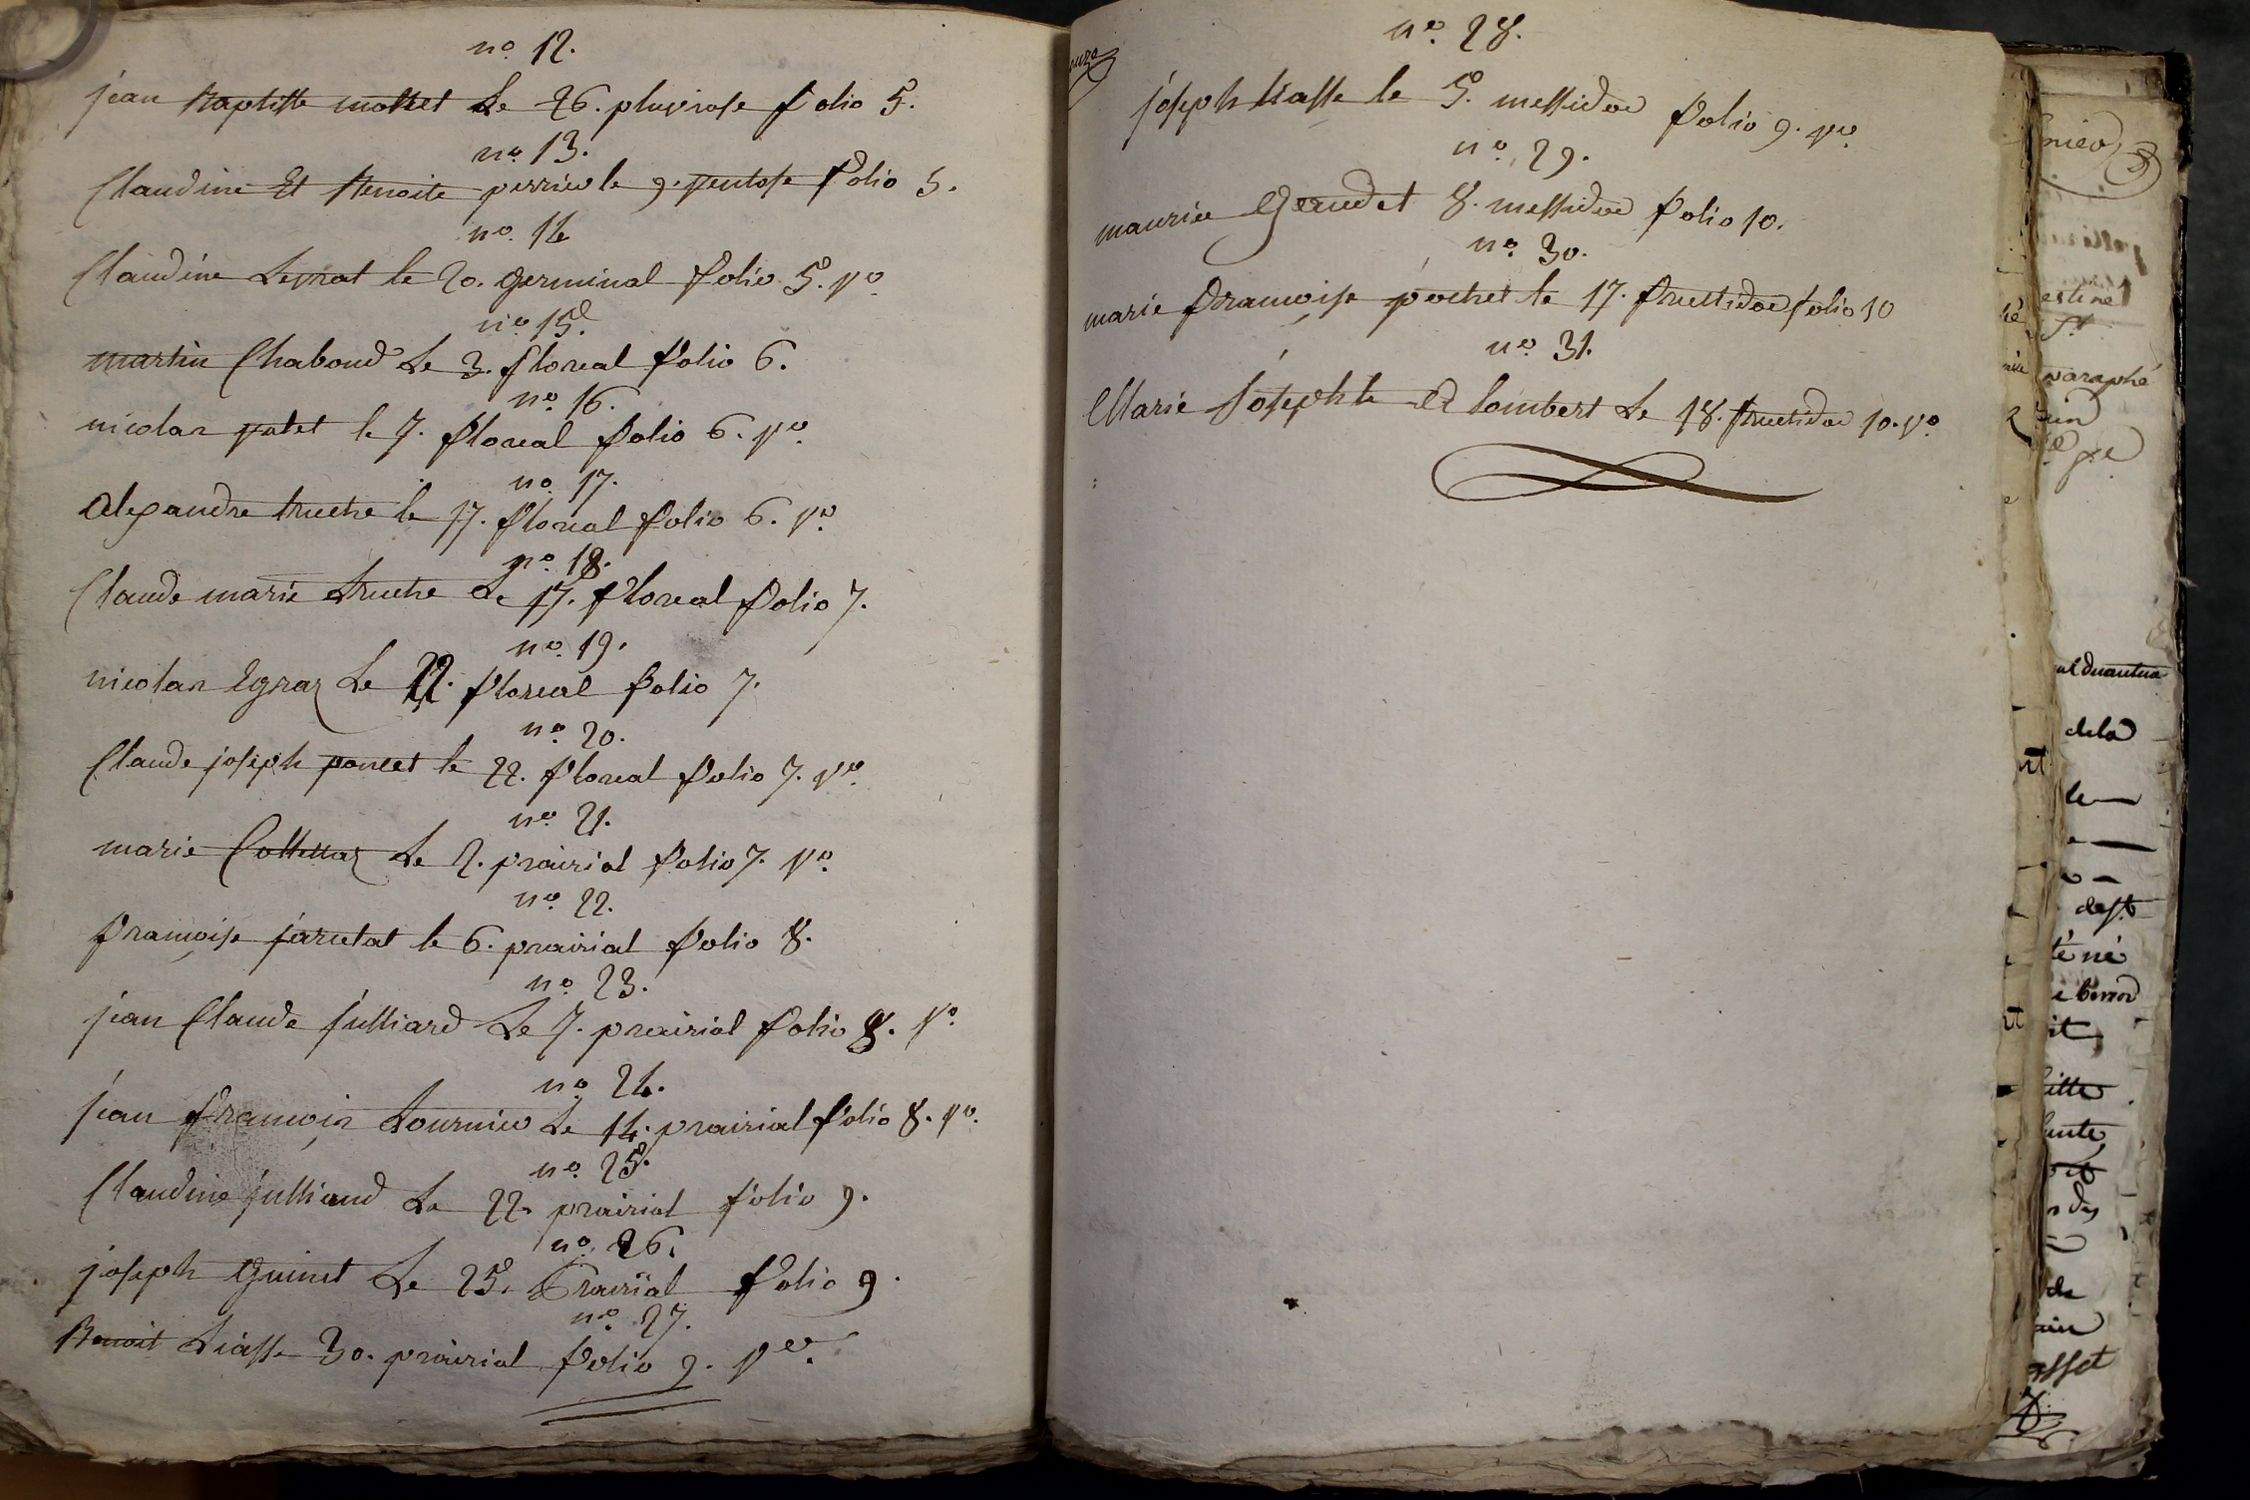 no. 12.
jean Baptiste mollet Le 26. pluviose folio 5.
no. 13.
Claudine Et Benoite perrier le 9. ventose folio 5.
no. 14
Claudine Levrat le 20. germinal folio 5. vo
no. 15.
martin Chaboud Le 3. floreal folio 6.
no. 16.
nicolas valet le 7. floreal folio 6. vo.
no. 17.
alexandre truche le 17. floreal folio 6. vo.
no. 18.
Claude marie truche Le 17. floreal folio 7.
no. 19.
nicolas Egraz Le 22. floreal folio 7.
no. 20.
Claude joseph poncet le 22. floreal folio 7. vo.
no. 21.
marie Le 2. prairial folio 7. vo.
no. 22.
françoise le 6. prairial folio 8.
no. 23.
jean Claude julliard Le 7. prairial folio 8. vo.
no. 24.
jean françois tournier Le 14. prairial folio 8. vo.
no. 25.
Claudine julliand Le 22. prairial folio 9.
no. 26.
joseph guinet Le 25. Prairial folio 9.
no. 27.
Benoit Liasse 30. prairial folio 9. vo.
no. 28.
joseph Liasse le 5. messidor folio 9. vo.
no. 29.
maurice gerudet 8. messidor folio 10.
no. 30.
marie françoise pochet le 17. fructidor folio 10
no. 31.
Marie Josephte lombert Le 18. fructidor 10. vo
nier
estinet
paraphé
dela
le
dest
té né
asset